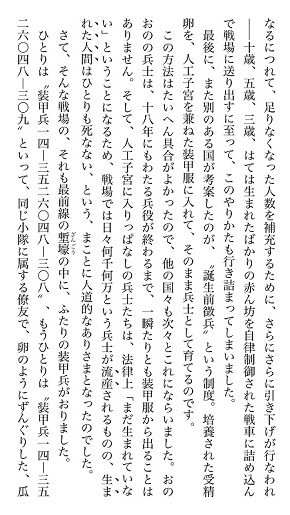 なるにつれて、足りなくなった人数を補充するために、さらにさらに引き下げが行なわれ
――十歳、五歳、三歳、はては生まれたばかりの赤ん坊を自律制御された戦車に詰め込ん
で戦場に送り出すに至って、このやりかたも行き詰まってしまいました。
最後に、また別のある国が考案したのが、〝誕生前徴兵〟という制度。培養された受精
卵を、人工子宮を兼ねた装甲服に入れて、そのまま兵士として育てるのです。
この方法はたいへん具合がよかったので、他の国々も次々とこれにならいました。おの
おのの兵士は、十八年にもわたる兵役が終わるまで、一瞬たりとも装甲服から出ることは
ありません。そして、人工子宮に入りっぱなしの兵士たちは、法律上「まだ生まれていな
い」ということになるため、戦場では日々何千何万という兵士が流産されるものの、生ま
れた人間はひとりも死なない、という、まことに人道的なありさまとなったのでした。
さて、そんな戦場の、それも最前線の塹壕の中に、ふたりの装甲兵がおりました。
ひとりは〝装甲兵一四―三五二六〇四八―三〇八〟、もうひとりは〝装甲兵一四―三五
二六〇四八―三〇九〟といって、同じ小隊に属する僚友で、卵のようにずんぐりした、瓜